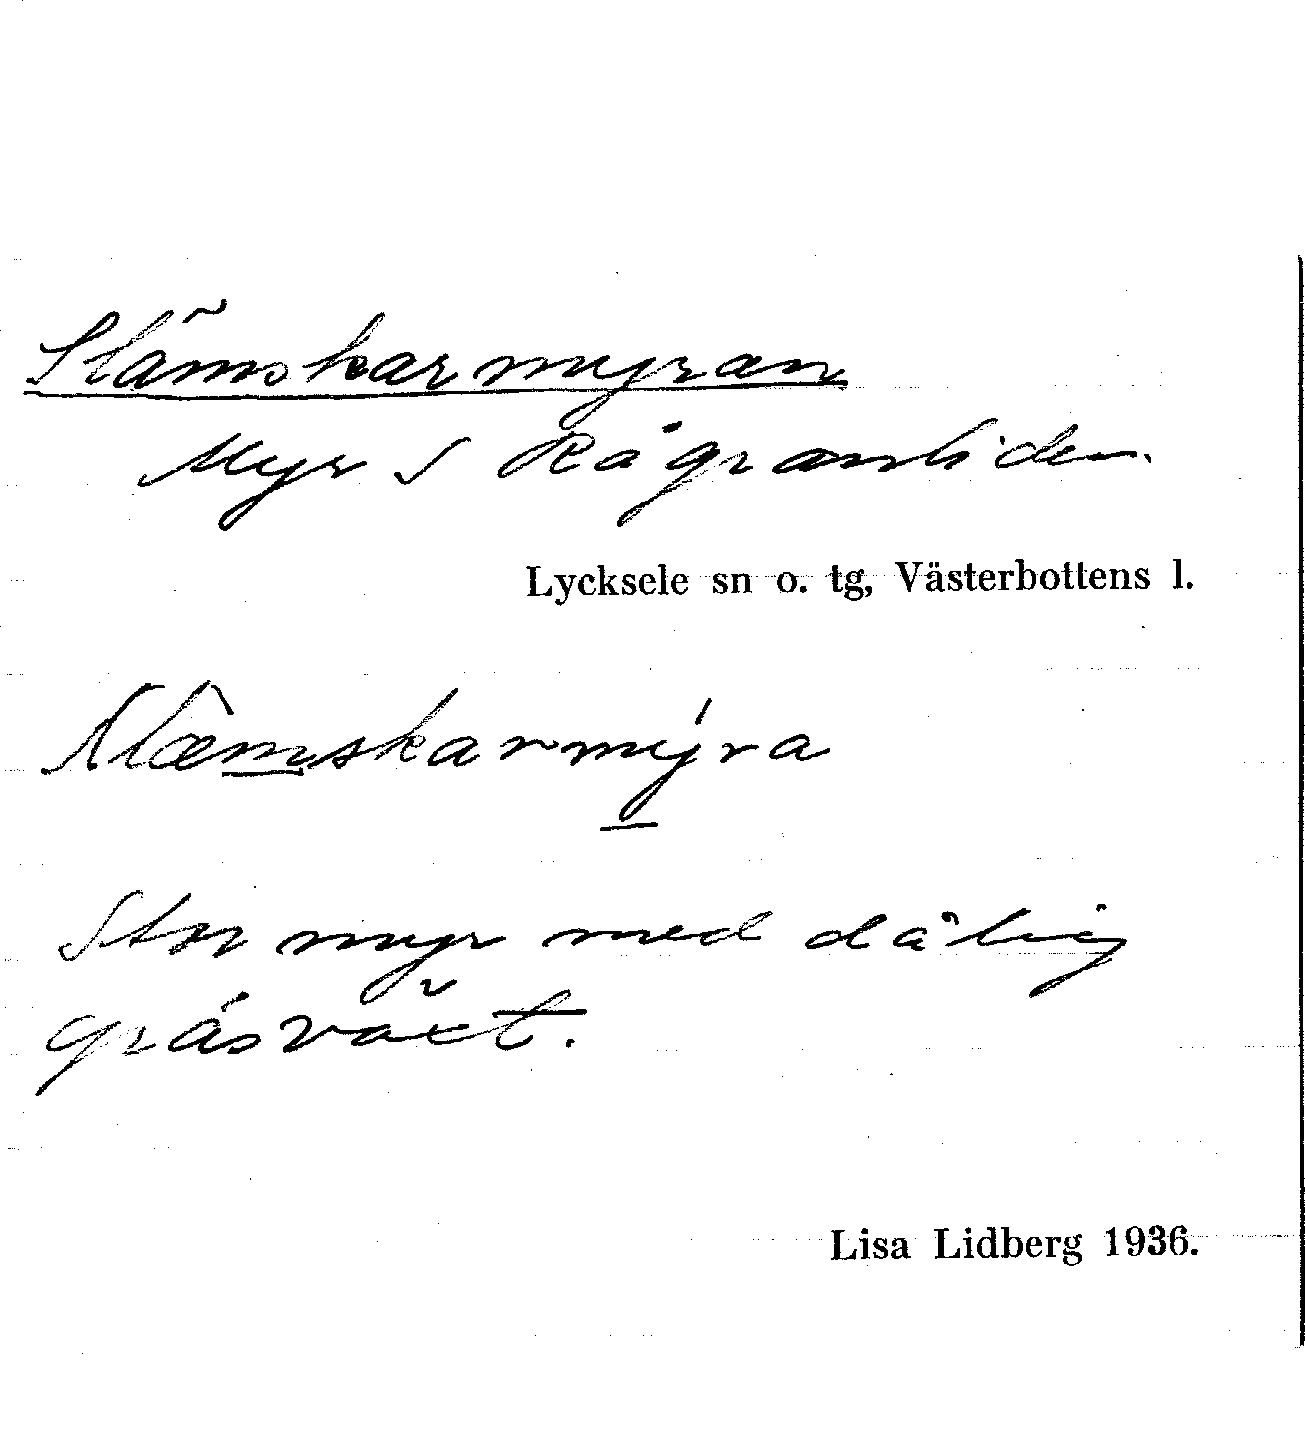 Slämskarmyran
Myr S Rågranliden.
Lycksele sn o. tg, Västerbottens l.
Slæmskarmýra
Stor myr med dålig
gräsväxt.
Lisa Lidberg 1936.